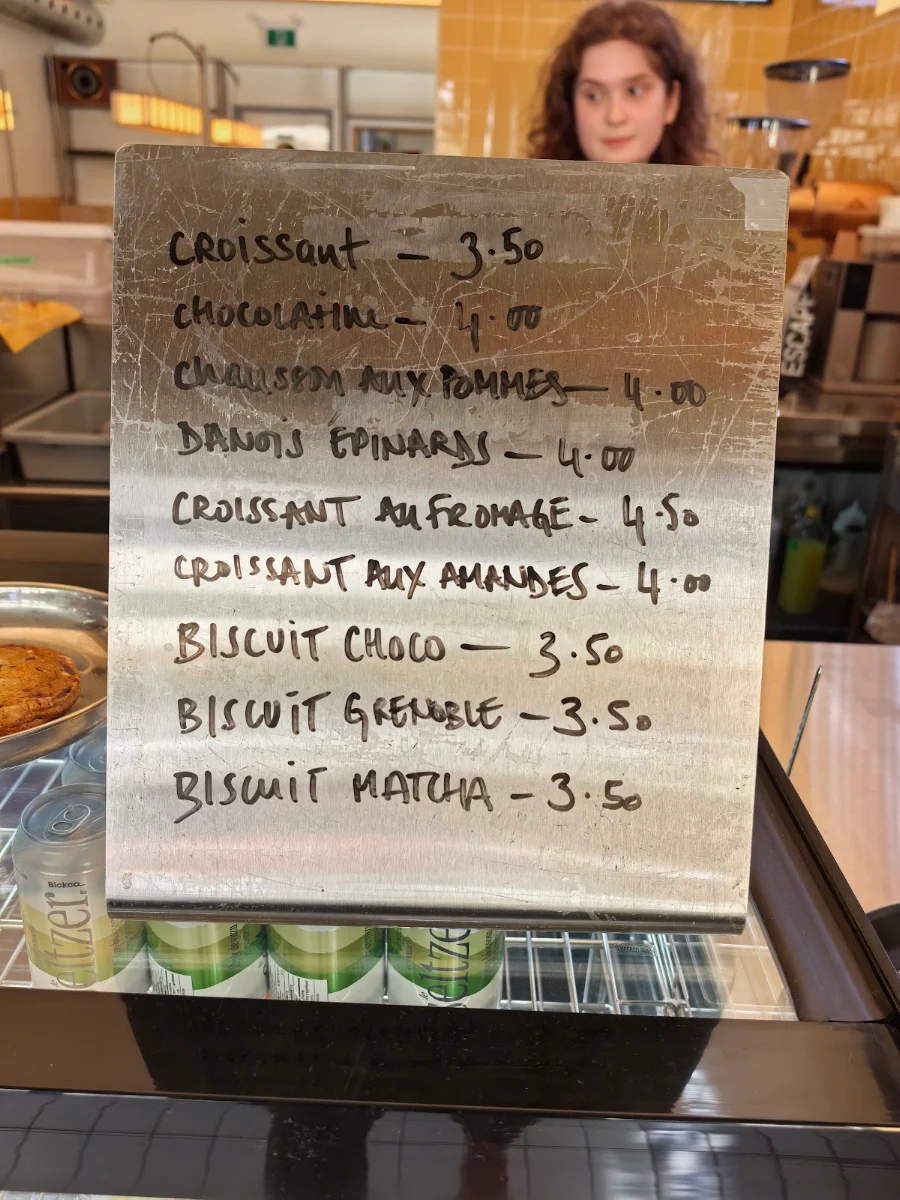 Croissant – 3.50
CHOCOLATINE – 4.00
CHAUSSON AUX POMMES – 4.00
DANOIS ÉPINARDS – 4.00
CROISSANT AU FROMAGE – 4.50
CROISSANT AUX AMANDES – 4.00
BISCUIT CHOCO – 3.50
BISCUIT GRENOBLE – 3.50
BISCUIT MATCHA – 3.50
ESCAPE
eltzer
eltze